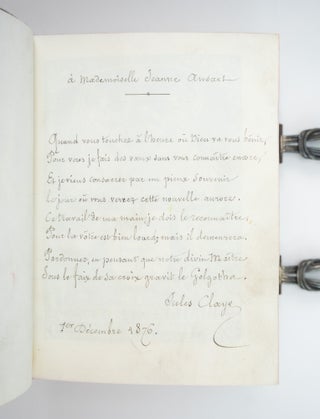 à Mademoiselle Jeanne Ansart
Quand vous touchez à l'heure où Dieu va vous bénir,
Pour vous je fais des vœux sans vous connaître encore,
Et je viens consacrer par un pieux souvenir
Le jour où vous verrez cette nouvelle aurore.
Ce travail de ma main, je dois le reconnaître,
Pour la vôtre est bien lourd, mais il demeurera.
Pardonnez, en pensant que notre divin Maître
Sous le faix de sa croix gravit le Golgotha.
Jules Claye
1er Décembre 1876.